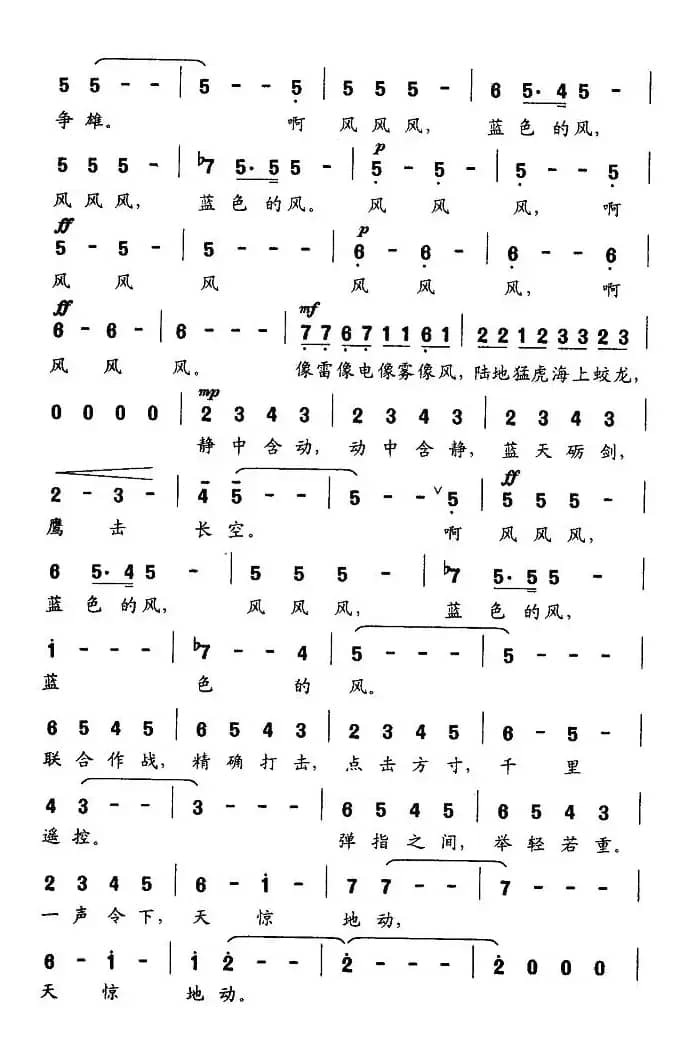 5 5 - - | 5 - - 5 | 5 5 5 - | 6 5· 4 5 - |
争雄。 啊 风风风， 蓝色的风，
p
5 5 5 - | ♭7 5· 5 5 - | 5 - 5 - | 5 - - 5 |
风风风， 蓝色的风。 风 风 风， 啊
ff p
5 - 5 - | 5 - - - | 6 - 6 - | 6 - - 6 |
风 风 风 风 风 风， 啊
ff mf
6 - 6 - | 6 - - - | 7 7 6 7 1 1 6 1 | 2 2 1 2 3 3 2 3 |
风 风 风。 像雷像电像雾像风，陆地猛虎海上蛟龙，
mp
0 0 0 0 | 2 3 4 3 | 2 3 4 3 | 2 3 4 3 |
静中含动， 动中含静， 蓝天砺剑，
ff
2 - 3 - | 4 5 - - | 5 - - ∨ 5 | 5 5 5 - |
鹰 击 长空。 啊 风风风，
6 5· 4 5 - | 5 5 5 - | ♭7 5· 5 5 - |
蓝色的风， 风风风， 蓝色的风，
1 - - - | ♭7 - - 4 | 5 - - - | 5 - - - |
蓝 色 的 风。
6 5 4 5 | 6 5 4 3 | 2 3 4 5 | 6 - 5 - |
联合作战， 精确打击， 点击方寸， 千 里
4 3 - - | 3 - - - | 6 5 4 5 | 6 5 4 3 |
遥控。 弹指之间， 举轻若重。
2 3 4 5 | 6 - 1 - | 7 7 - - | 7 - - - |
一声令下， 天 惊 地动，
6 - 1 - | 1 2 - - | 2 - - - | 2 0 0 0 |
天 惊 地动。